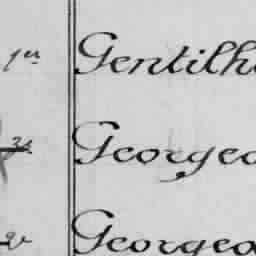 1er Gentilh
2e Georgeo
2e Georgeo